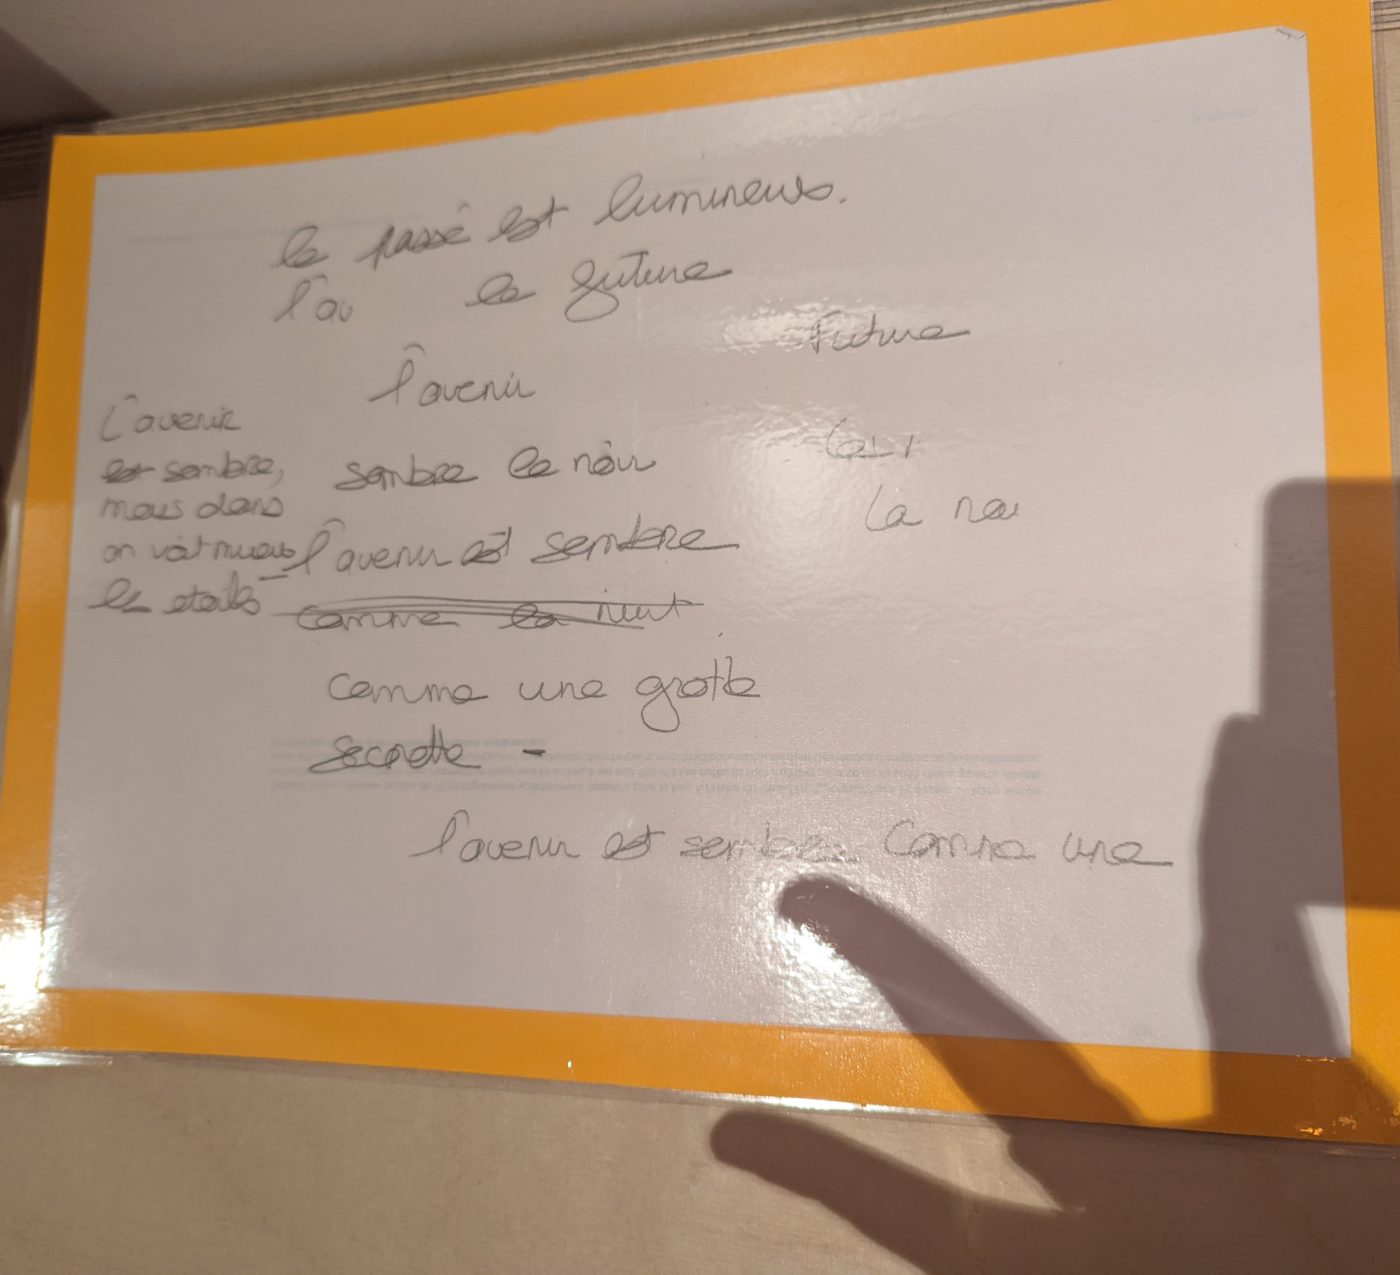 le passé est lumineux.
l'av le future
Future
l'avenir
L'avenir
est sombre,
mais dans
on voit mieux
les etoiles
sombre le noir
La
l'avenir est sombre
comme la nuit
comme une grotte
secrette -
l'avenir est sombre comme une